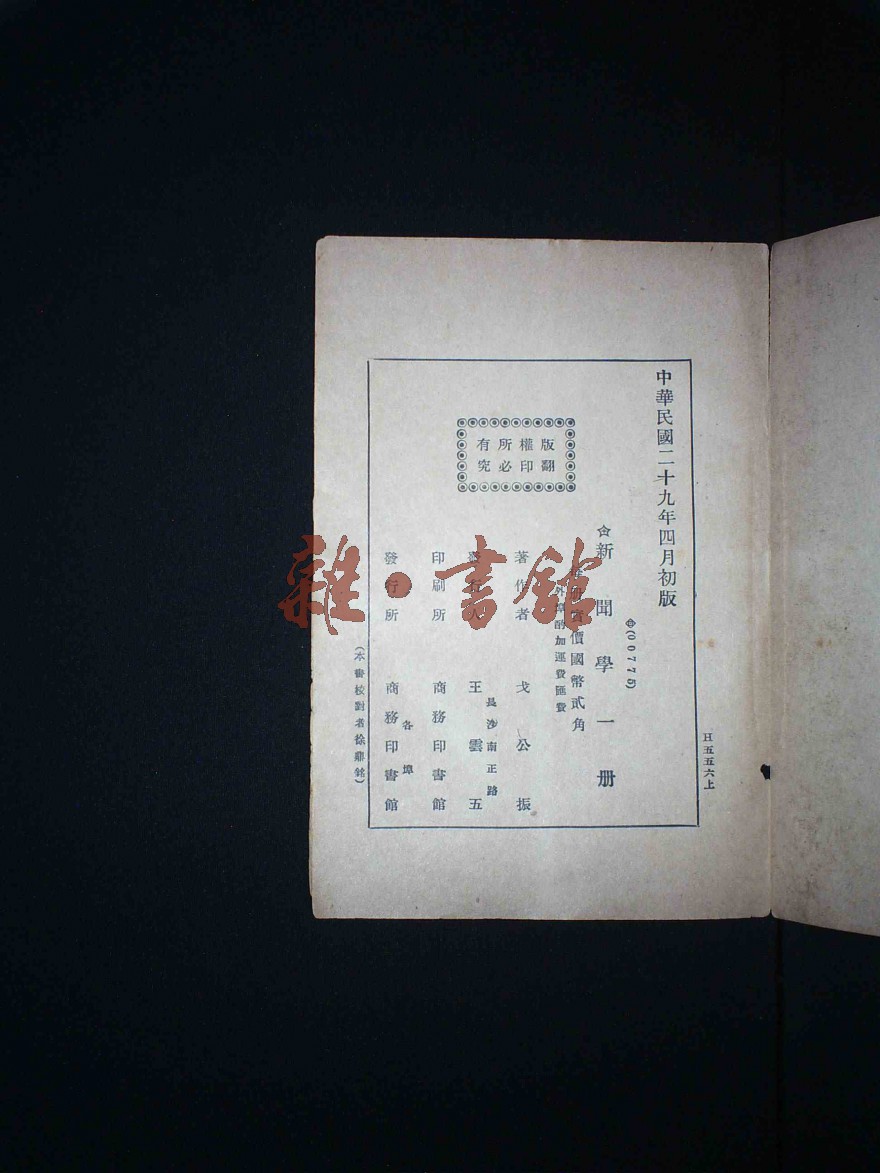 H五五六上
中華民國二十九年四月初版
(00775)
新聞學一册
每册實價國幣貳角
外埠酌加運費匯費
版權所有
翻印必究
著作者 戈公振
長沙南正路
發行人 王雲五
印刷所 商務印書館
各埠
發行所 商務印書館
(本書校對者徐鼎銘)
雜·書館